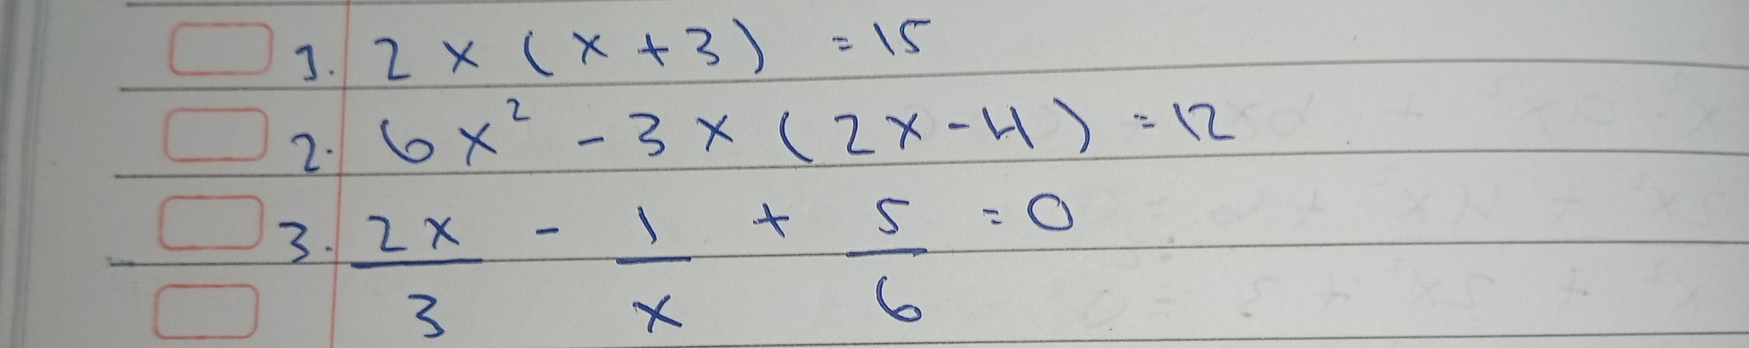 1. 2x(x+3) = 15
2. 6x² - 3x(2x-4) = 12
3. 2x/3 - 1/x + 5/6 = 0